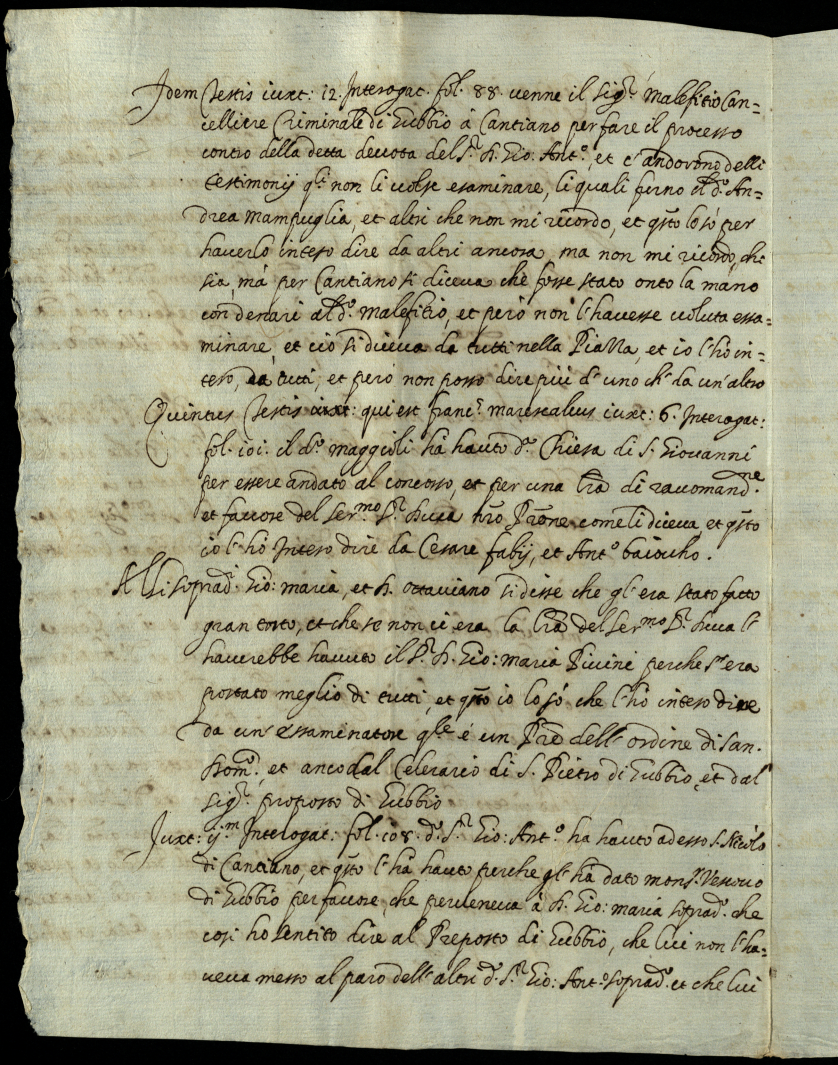 Idem Testis iuxt: 12. Interogat. fol. 88. venne il Sig.r Malefitio Can=
celliere Criminale di Eubbio à Cantiano per fare il processo
contro della detta del S.r D. Gio: Ant.o, et c' andorono delli
testimonij q.li non li volse esaminare, li quali furno il d.o An=
drea Mampuglia, et altri che non mi ricordo, et q̃sto lo sò per
haverlo inteso dire da altri ancora, ma non mi ricordo chi
sia, mà per Cantiano si diceva che fosse stato onto la mano
con denari al d.o Malefitio, et però non l'havesse voluta essa=
minare, et ciò si diceva da tutti nella Piazza, et io l'hò in=
teso, da tutti, et però non posso dire più d' uno ch' da un' altro
Quintus Testis iuxt: qui est Franc.s iuxt: 6. Interogat:
fol. 101. il d.o Maggioli hà hauto d.a Chiesa di S. Giovanni
per essere andato al concorso, et per una l̃ra di racomand.ne
et favore del Ser.mo S.r Duca n̄ro P̄rone come li diceva, et q̃sto
io l'hò inteso dire da Cesare Fabij, et Ant.o baiocho.
Alli soprad.i Gio: Maria, et D. Ottaviano si disse che gl' era stato fatto
gran torto, et che se non ci era la l̃ra del Ser.mo S.r Duca l'
haverebbe havuto il S.r D. Gio: Maria Pivini perche s' era
portato meglio di tutti, et q̃sto io lo sò che l'hò inteso dire
da un' Essaminatore q.le è un P̄re dell' ordine di San.
Dom.co, et anco dal Celerario di S. Pietro di Eubbio, et dal
Sig.r proposto di Eubbio
Juxt: ij.m Interogat: fol. 108. d.o S.r Gio: Ant.o ha hauto adesso S. Nicolo
di Cantiano, et q̃sto l'hà hauto perche gl' hà dato Mons.r Vescovo
di Eubbio per favore, che perveneva à D. Gio: Maria soprad.o che
cosi ho sentito dire al Preposto di Eubbio, che lui non l'ha=
veva messo al paro dell' altri d.o S.r Gio: Ant.o soprad.o et che lui